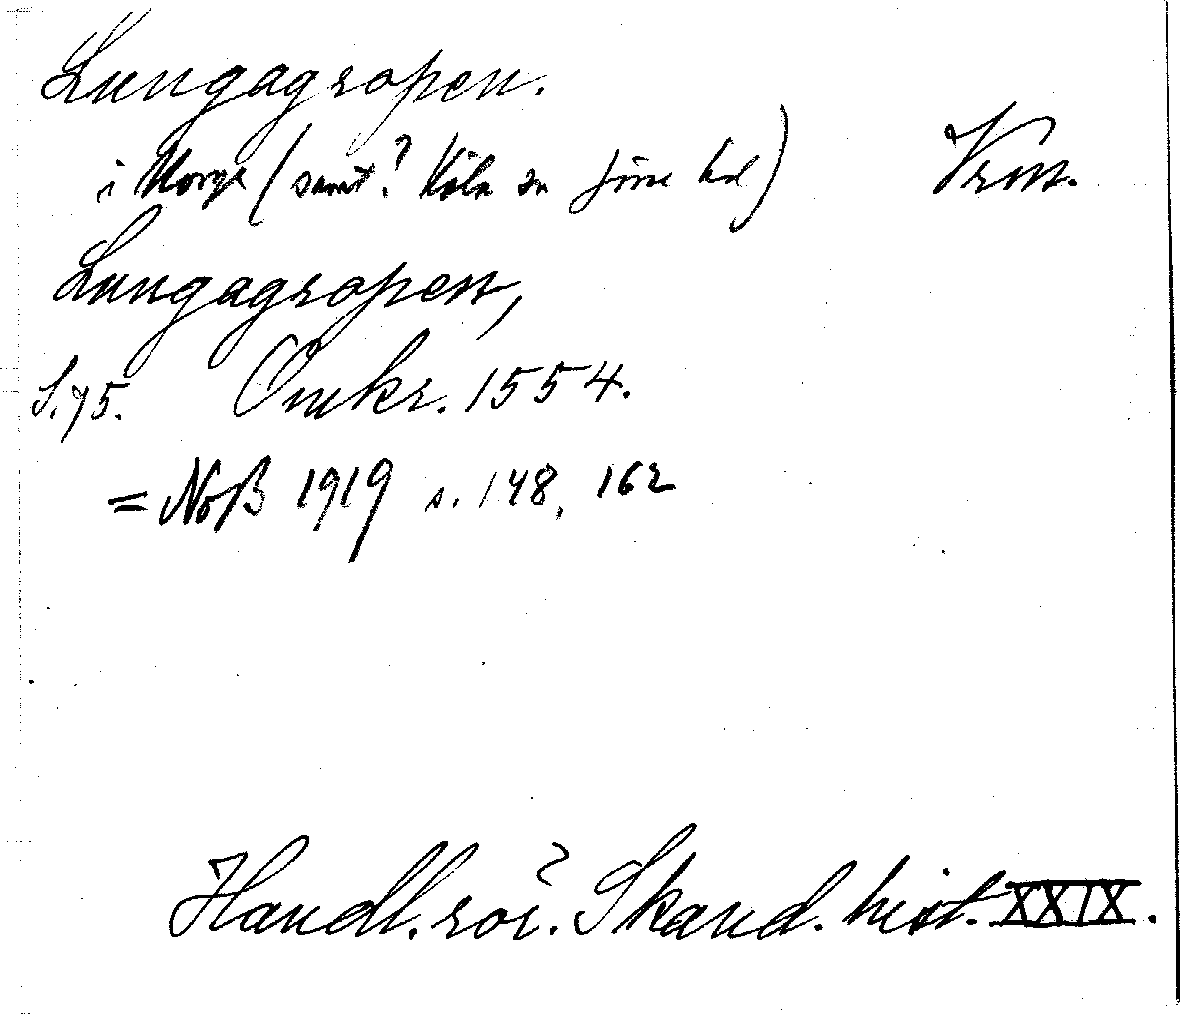 Lungagropen.
i Norge (samt? Köln en förne hd) Vrm.
Lungagropen,
S. 75. Omkr. 1554.
= NoB 1919 s. 148, 162
Handl. rör. Skand. hist. XXIX.